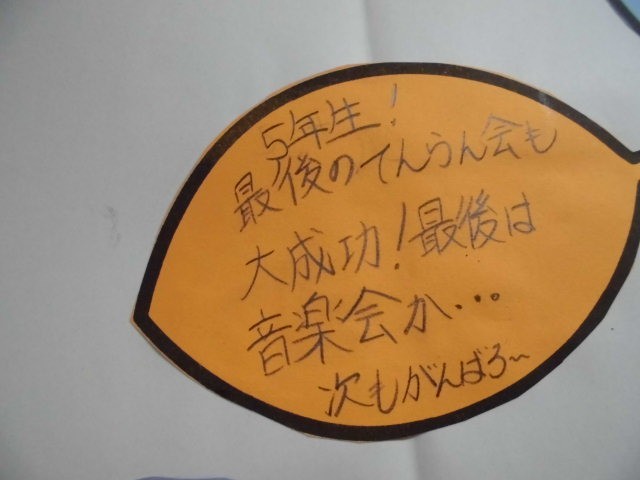 5年生!
最後のてんらん会も
大成功!最後は
音楽会か…
次もがんばろ~